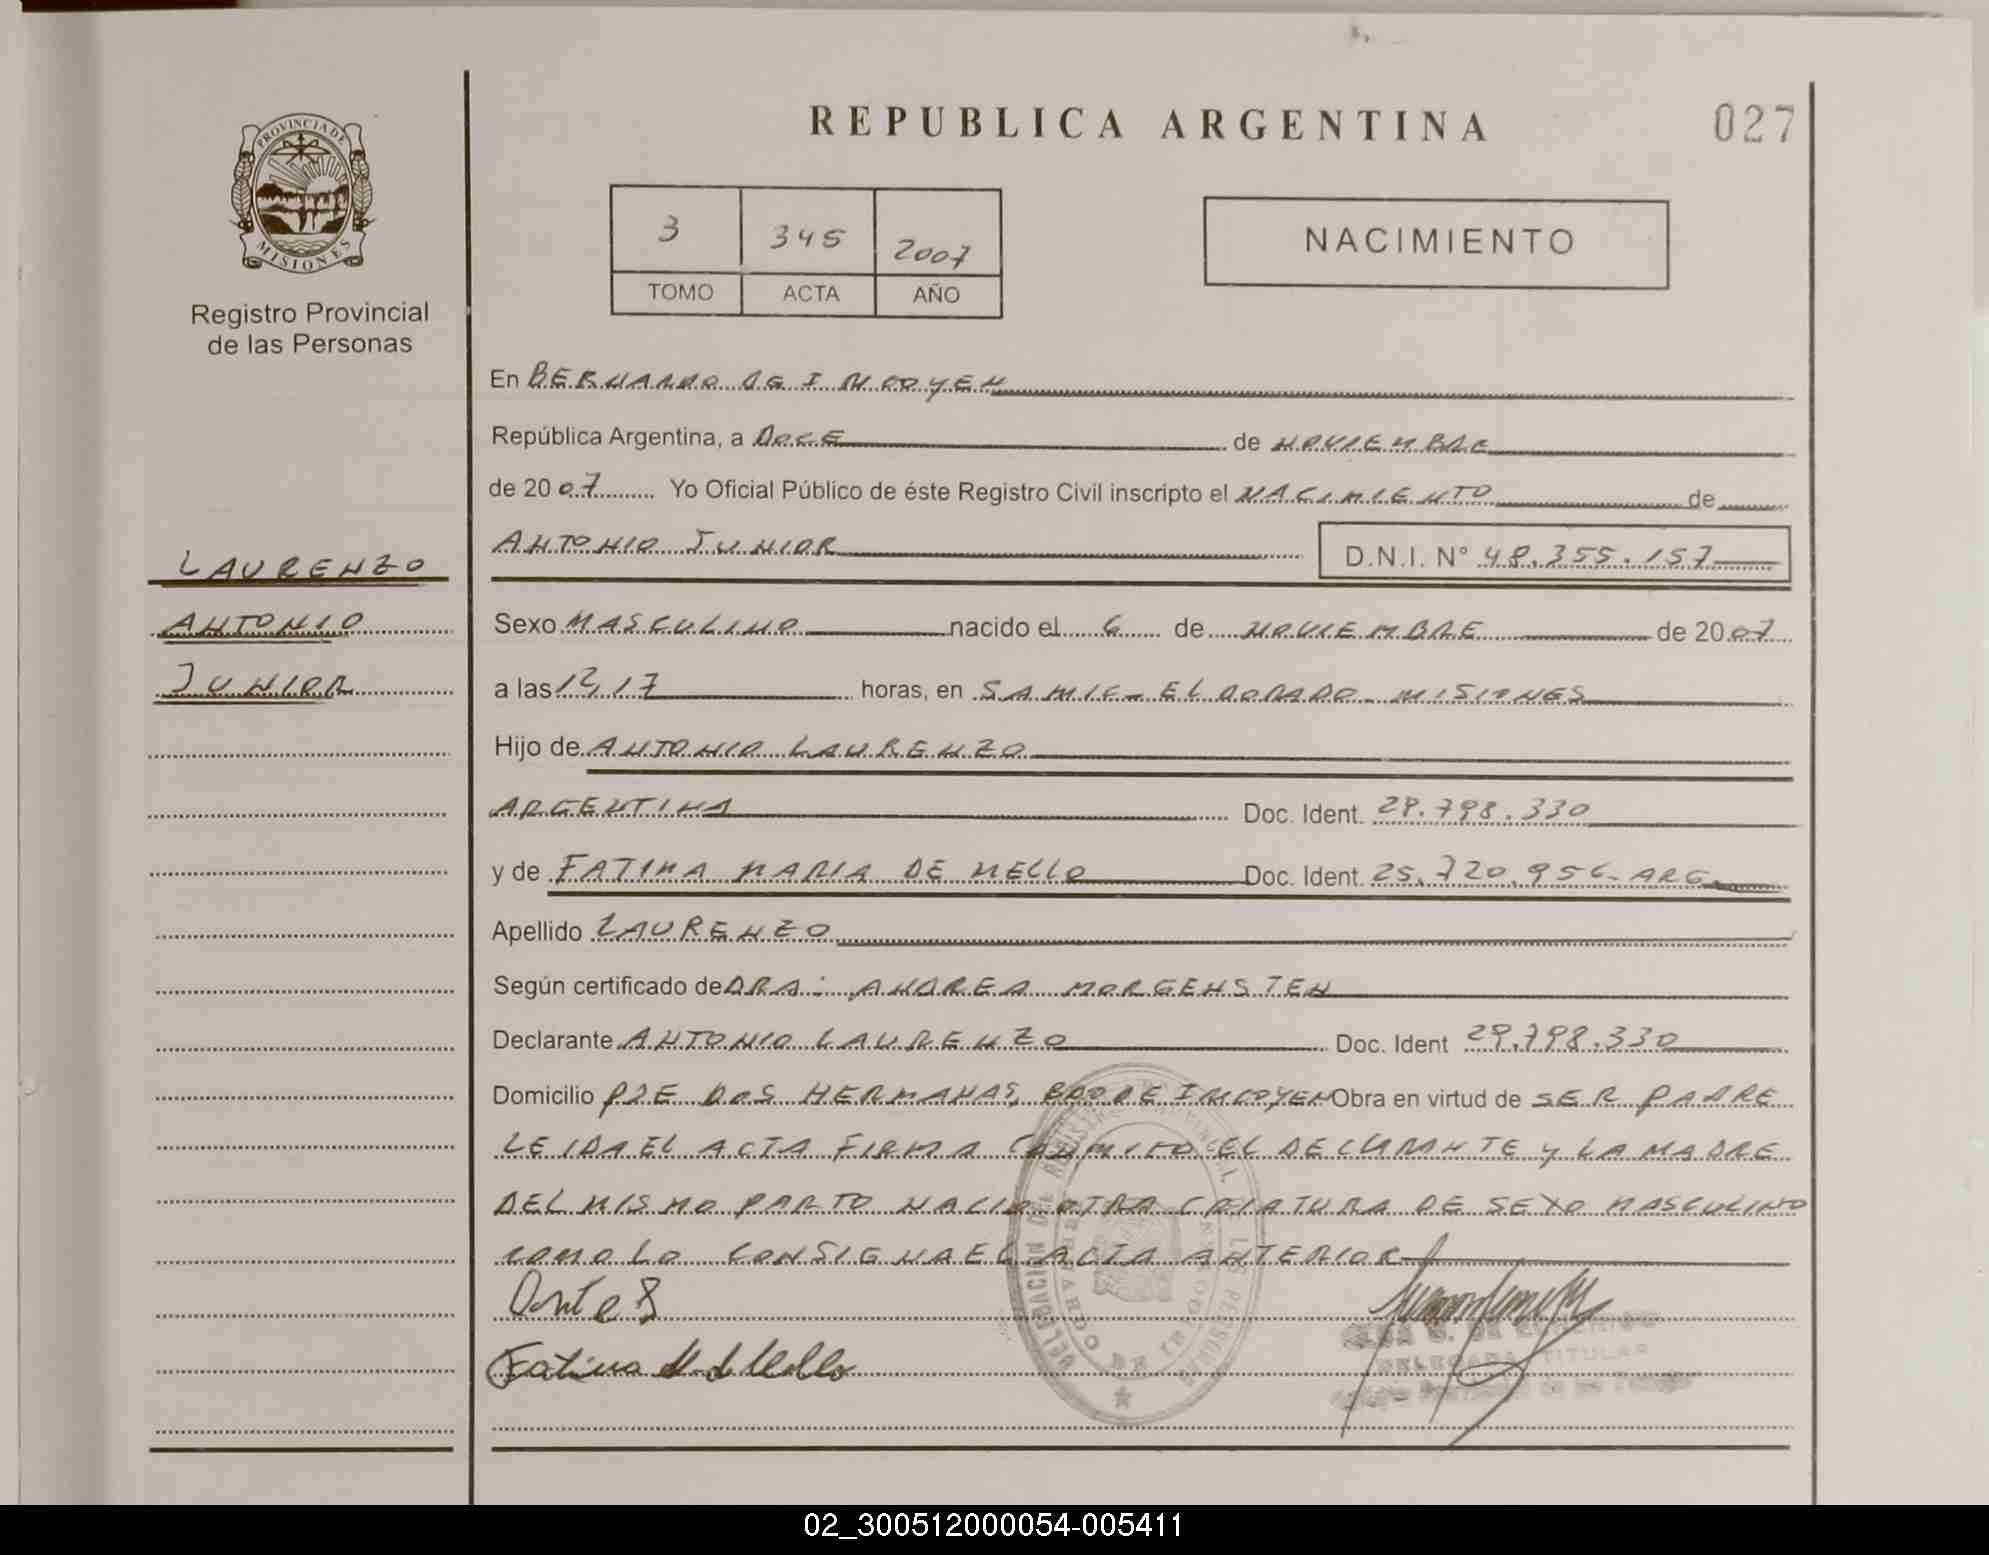 REPUBLICA ARGENTINA
027
PROVINCIA DE
MISIONES
Registro Provincial
de las Personas
3 345 2007
TOMO ACTA AÑO
NACIMIENTO
En BERNARDO DE IRIGOYEN
República Argentina, a DOCE de NOVIEMBRE
de 2007 Yo Oficial Público de éste Registro Civil inscripto el NACIMIENTO de
ANTONIO JUNIOR D.N.I. N° 48.355.157
LAURENZO
ANTONIO
JUNIOR
Sexo MASCULINO nacido el 6 de NOVIEMBRE de 2007
a las horas, en SAMIC - ELDORADO - MISIONES
Hijo de ANTONIO LAURENZO
ARGENTINA Doc. Ident. 29.798.330
y de FATIMA MARIA DE MELLO Doc. Ident. 25.720.956 - ARG.
Apellido LAURENZO
Según certificado de DRA: ANDREA MORGENSTEN
Declarante ANTONIO LAURENZO Doc. Ident 29.798.330
Domicilio PJE DOS HERMANAS, BDO DE IRIGOYEN Obra en virtud de SER PADRE
LEIDA EL ACTA FIRMA CONMIGO EL DECLARANTE Y LA MADRE
DEL MISMO PARTO NACIO OTRA CRIATURA DE SEXO MASCULINO
COMO LO CONSIGNA EL ACTA ANTERIOR
Fatima M. de Mello
DELEGADA TITULAR
02_300512000054-005411